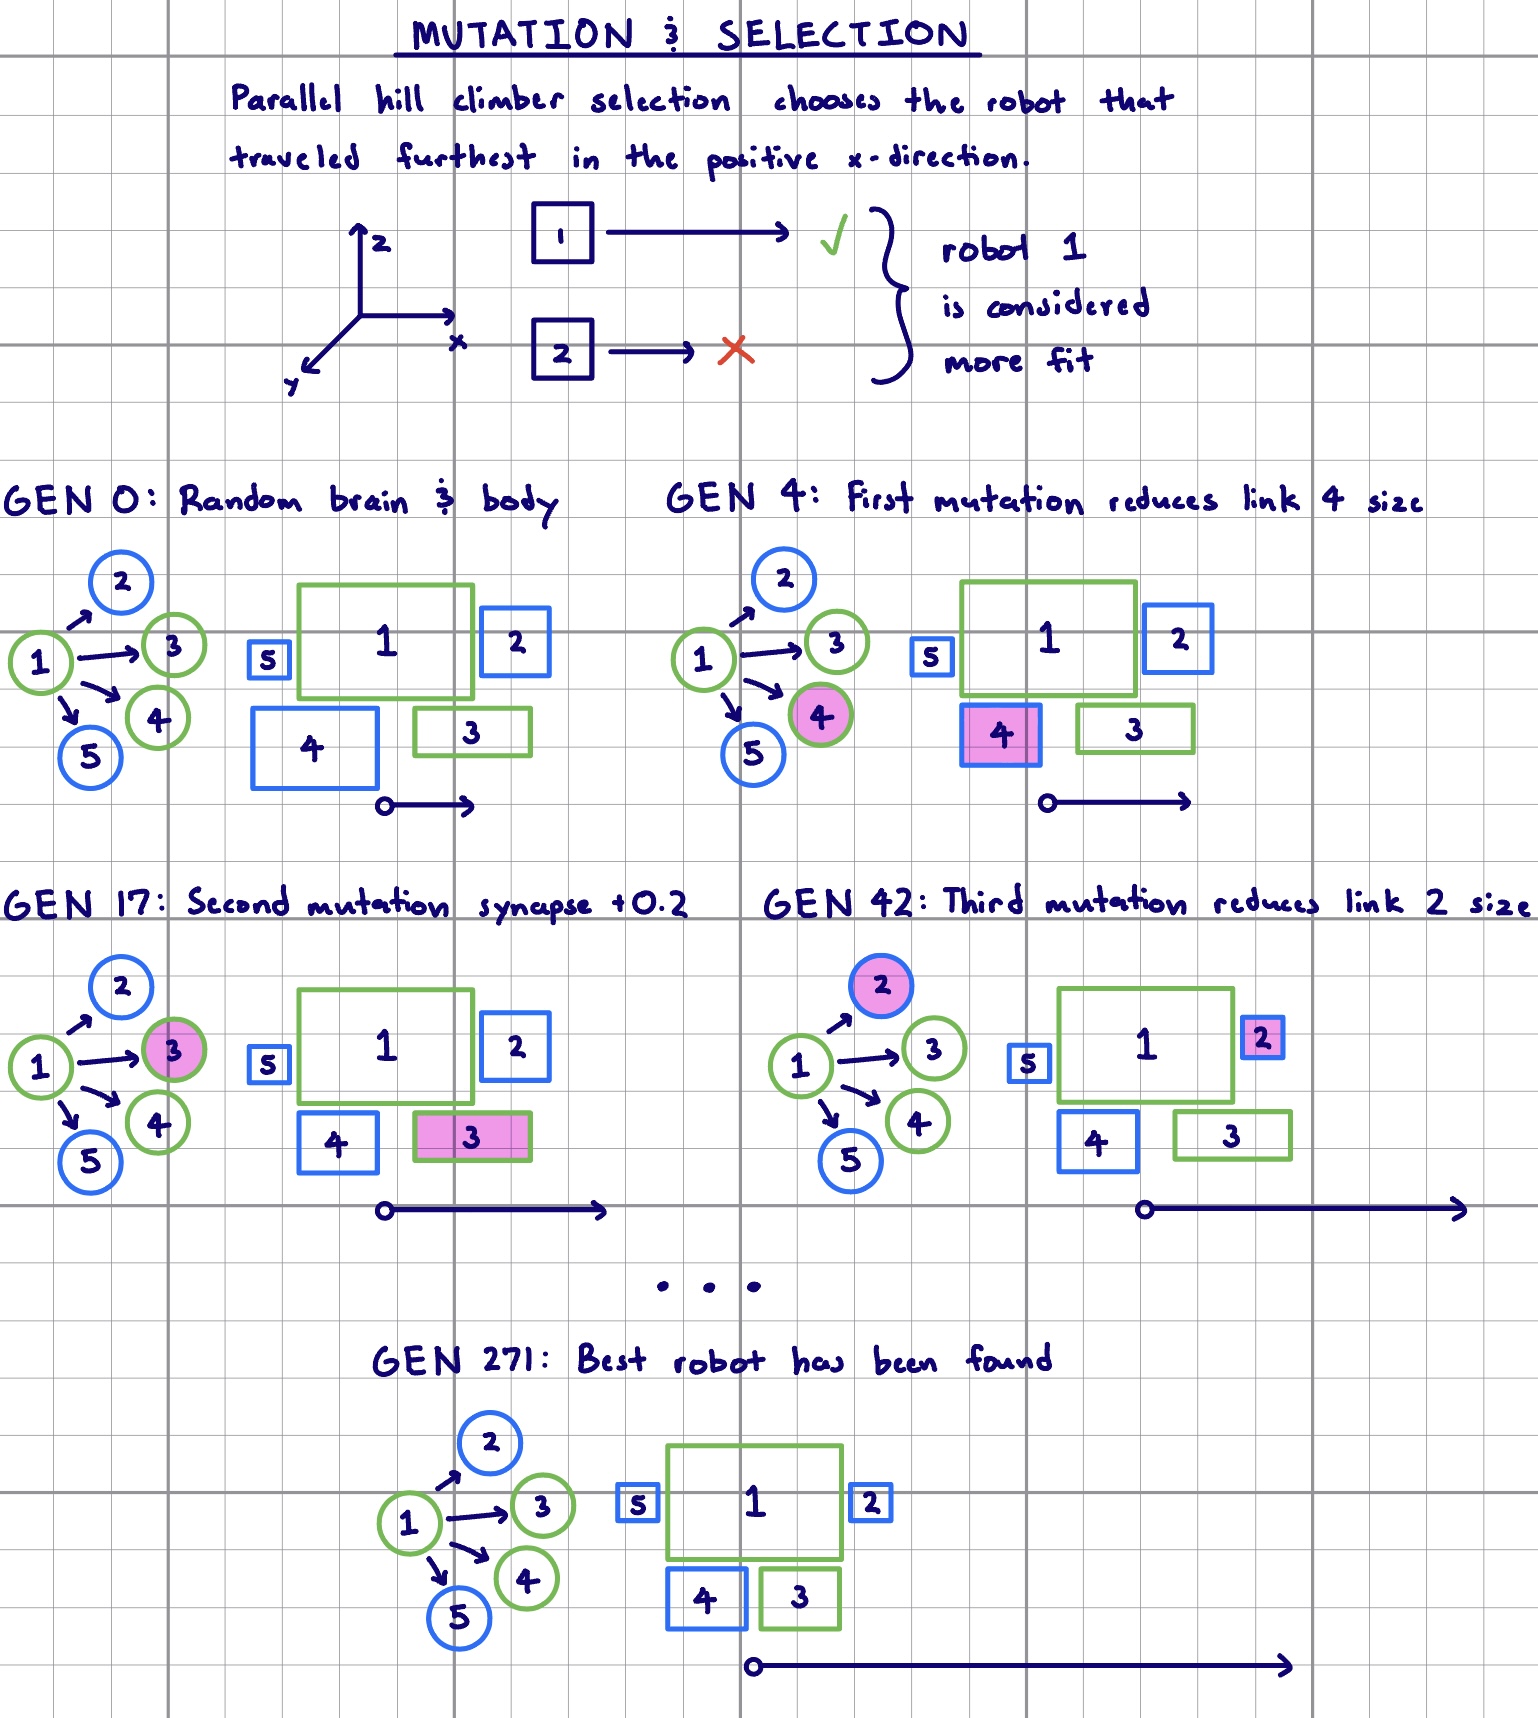 MUTATION & SELECTION
Parallel hill climber selection chooses the robot that
traveled furthest in the positive x-direction.
z
x
y
1
2
robot 1
is considered
more fit
GEN 0: Random brain & body
2
1
3
4
5
5
1
2
4
3
GEN 4: First mutation reduces link 4 size
2
1
3
4
5
5
1
2
4
3
GEN 17: Second mutation synapse +0.2
2
1
3
4
5
5
1
2
4
3
GEN 42: Third mutation reduces link 2 size
2
1
3
4
5
5
1
2
4
3
...
GEN 271: Best robot has been found
2
1
3
4
5
5
1
2
4
3